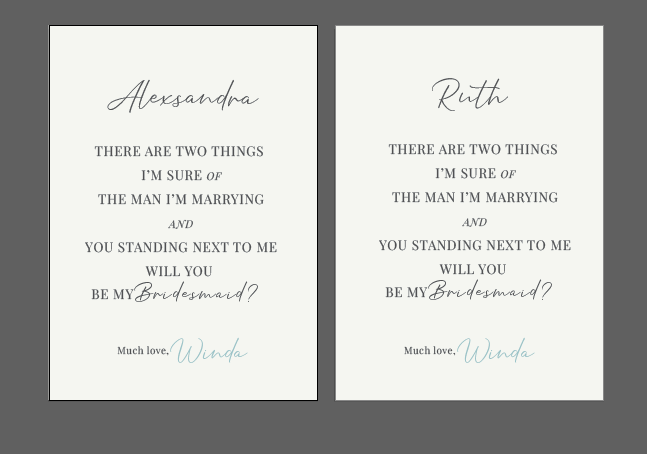 Alexsandra
THERE ARE TWO THINGS
I'M SURE OF
THE MAN I'M MARRYING
AND
YOU STANDING NEXT TO ME
WILL YOU
BE MY Bridesmaid?
Much love, Winda
Ruth
THERE ARE TWO THINGS
I'M SURE OF
THE MAN I'M MARRYING
AND
YOU STANDING NEXT TO ME
WILL YOU
BE MY Bridesmaid?
Much love, Winda